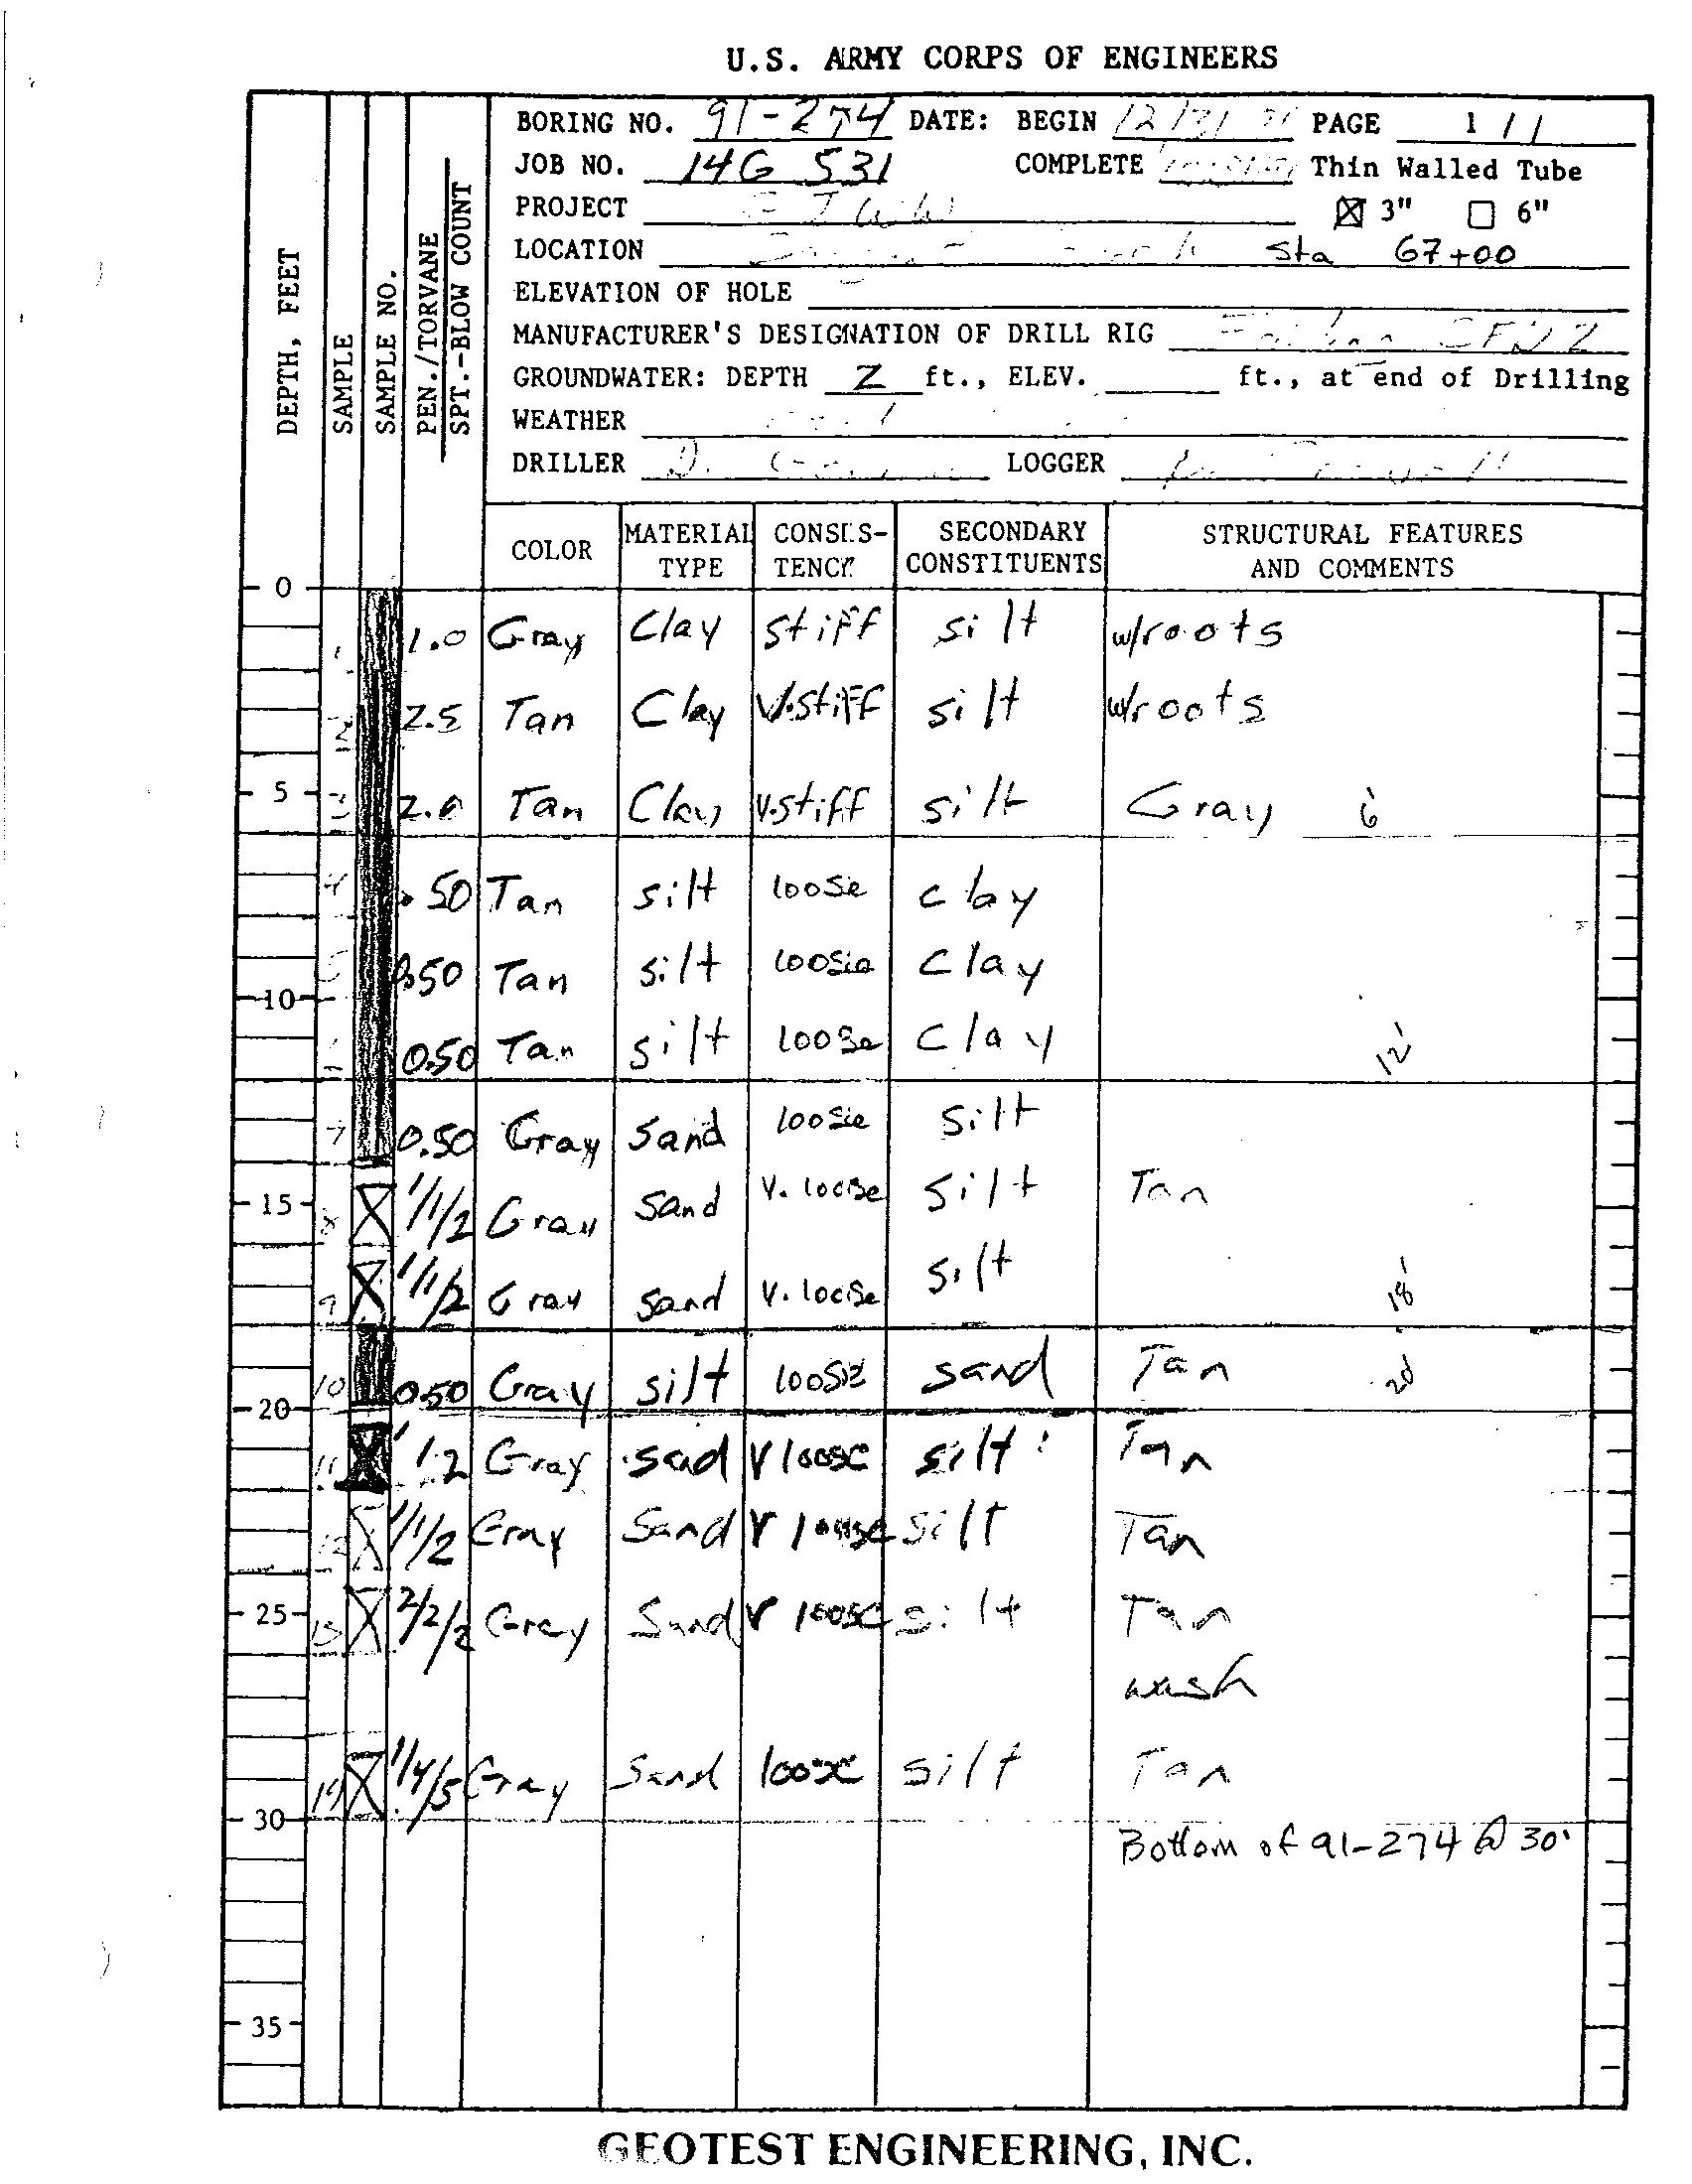 U.S. ARMY CORPS OF ENGINEERS
BORING NO. 91-274 DATE: BEGIN 12/31 PAGE 1 / 1
JOB NO. 14G 531 COMPLETE Thin Walled Tube
PROJECT ☒ 3" ☐ 6"
LOCATION Sta 67+00
ELEVATION OF HOLE
MANUFACTURER'S DESIGNATION OF DRILL RIG
GROUNDWATER: DEPTH 2 ft., ELEV. ft., at end of Drilling
WEATHER
DRILLER D. LOGGER
DEPTH, FEET
SAMPLE
SAMPLE NO.
PEN./TORVANE
SPT.-BLOW COUNT
COLOR MATERIAL TYPE CONSIS-TENCY SECONDARY CONSTITUENTS STRUCTURAL FEATURES AND COMMENTS
0
1 1.0 Gray Clay stiff silt w/roots
2 2.5 Tan Clay V.stiff silt w/roots
5 3 2.0 Tan Clay V.stiff silt Gray 6'
4 .50 Tan silt loose clay
5 0.50 Tan silt loose clay
10
0.50 Tan silt loose clay 12'
7 0.50 Gray sand loose silt
15 8 1/1/2 Gray sand V. loose silt Tan
9 1/1/2 Gray sand V. loose silt 18'
10 0.50 Gray silt loose sand Tan 20'
20
11 1 1 2 Gray sand V loose silt Tan
12 1/1/2 Gray Sand V loose silt Tan
25 13 2/2/2 Gray Sand V loose silt Tan
wash
14 1/4/5 Gray Sand loose silt Tan
30
Bottom of 91-274 @ 30'
35
GEOTEST ENGINEERING, INC.